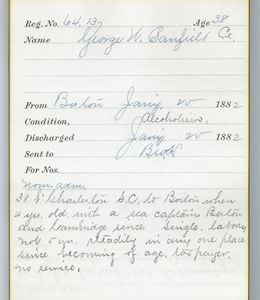 Reg. No. 64,137 Age 38
Name George W. Canfield Col.
From Boston Jany 20 1882
Condition, Alcoholism,
Discharged Jany 20 1882
Sent to
For Nos.
Vom. adm.
38 S. Charleston S.C. to Boston when
4 yrs. old with a sea captain Boston
and Cambridge since. Single, labor,
not 5 yrs. steadily in any one place
since becoming of age, tax payer,
no service.